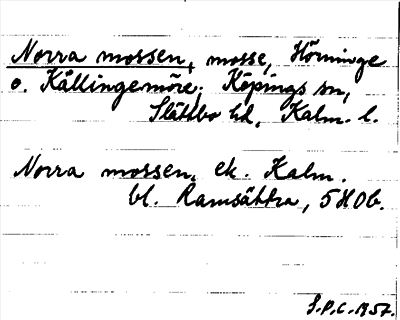 Norra mossen, mosse, Hörninge
o. Källingemöre, Köpings sn,
Slättbo hd, Kalm. l.
Norra mossen, ek. Kalm.
bl. Ramsättra, 5H0b.
S.P.C. 1957.